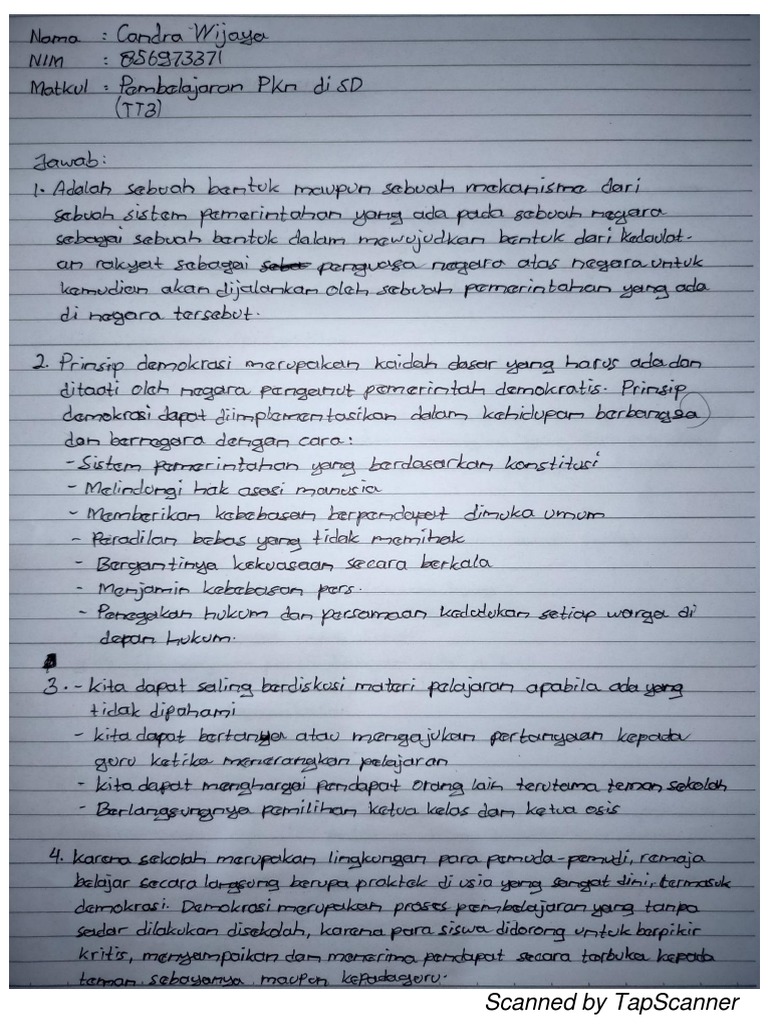 Nama : Candra Wijaya
NIM : 856973371
Matkul : Pembelajaran PKn di SD
(TT3)
Jawab:
1. Adalah sebuah bentuk maupun sebuah mekanisme dari
sebuah sistem pemerintahan yang ada pada sebuah negara
sebagai sebuah bentuk dalam mewujudkan bentuk dari kedaulat-
an rakyat sebagai penguasa negara atas negara untuk
kemudian akan dijalankan oleh sebuah pemerintahan yang ada
di negara tersebut.
2. Prinsip demokrasi merupakan kaidah dasar yang harus ada dan
ditaati oleh negara penganut pemerintah demokratis. Prinsip
demokrasi dapat diimplementasikan dalam kehidupan berbangsa
dan bernegara dengan cara:
- Sistem pemerintahan yang berdasarkan konstitusi
- Melindungi hak asasi manusia
- Memberikan kebebasan berpendapat dimuka umum
- Peradilan bebas yang tidak memihak
- Bergantinya kekuasaan secara berkala
- Menjamin kebebasan pers.
- Penegakan hukum dan persamaan kedudukan setiap warga di
depan hukum.
3. - kita dapat saling berdiskusi materi pelajaran apabila ada yang
tidak dipahami
- kita dapat bertanya atau mengajukan pertanyaan kepada
guru ketika menerangkan pelajaran
- kita dapat menghargai pendapat orang lain terutama teman sekolah
- Berlangsungnya pemilihan ketua kelas dan ketua osis
4. karena sekolah merupakan lingkungan para pemuda-pemudi, remaja
belajar secara langsung berupa praktek di usia yang sangat dini, termasuk
demokrasi. Demokrasi merupakan proses pembelajaran yang tanpa
sadar dilakukan disekolah, karena para siswa didorong untuk berpikir
kritis, menyampaikan dan menerima pendapat secara terbuka kepada
teman sebayanya maupun kepada guru.
Scanned by TapScanner